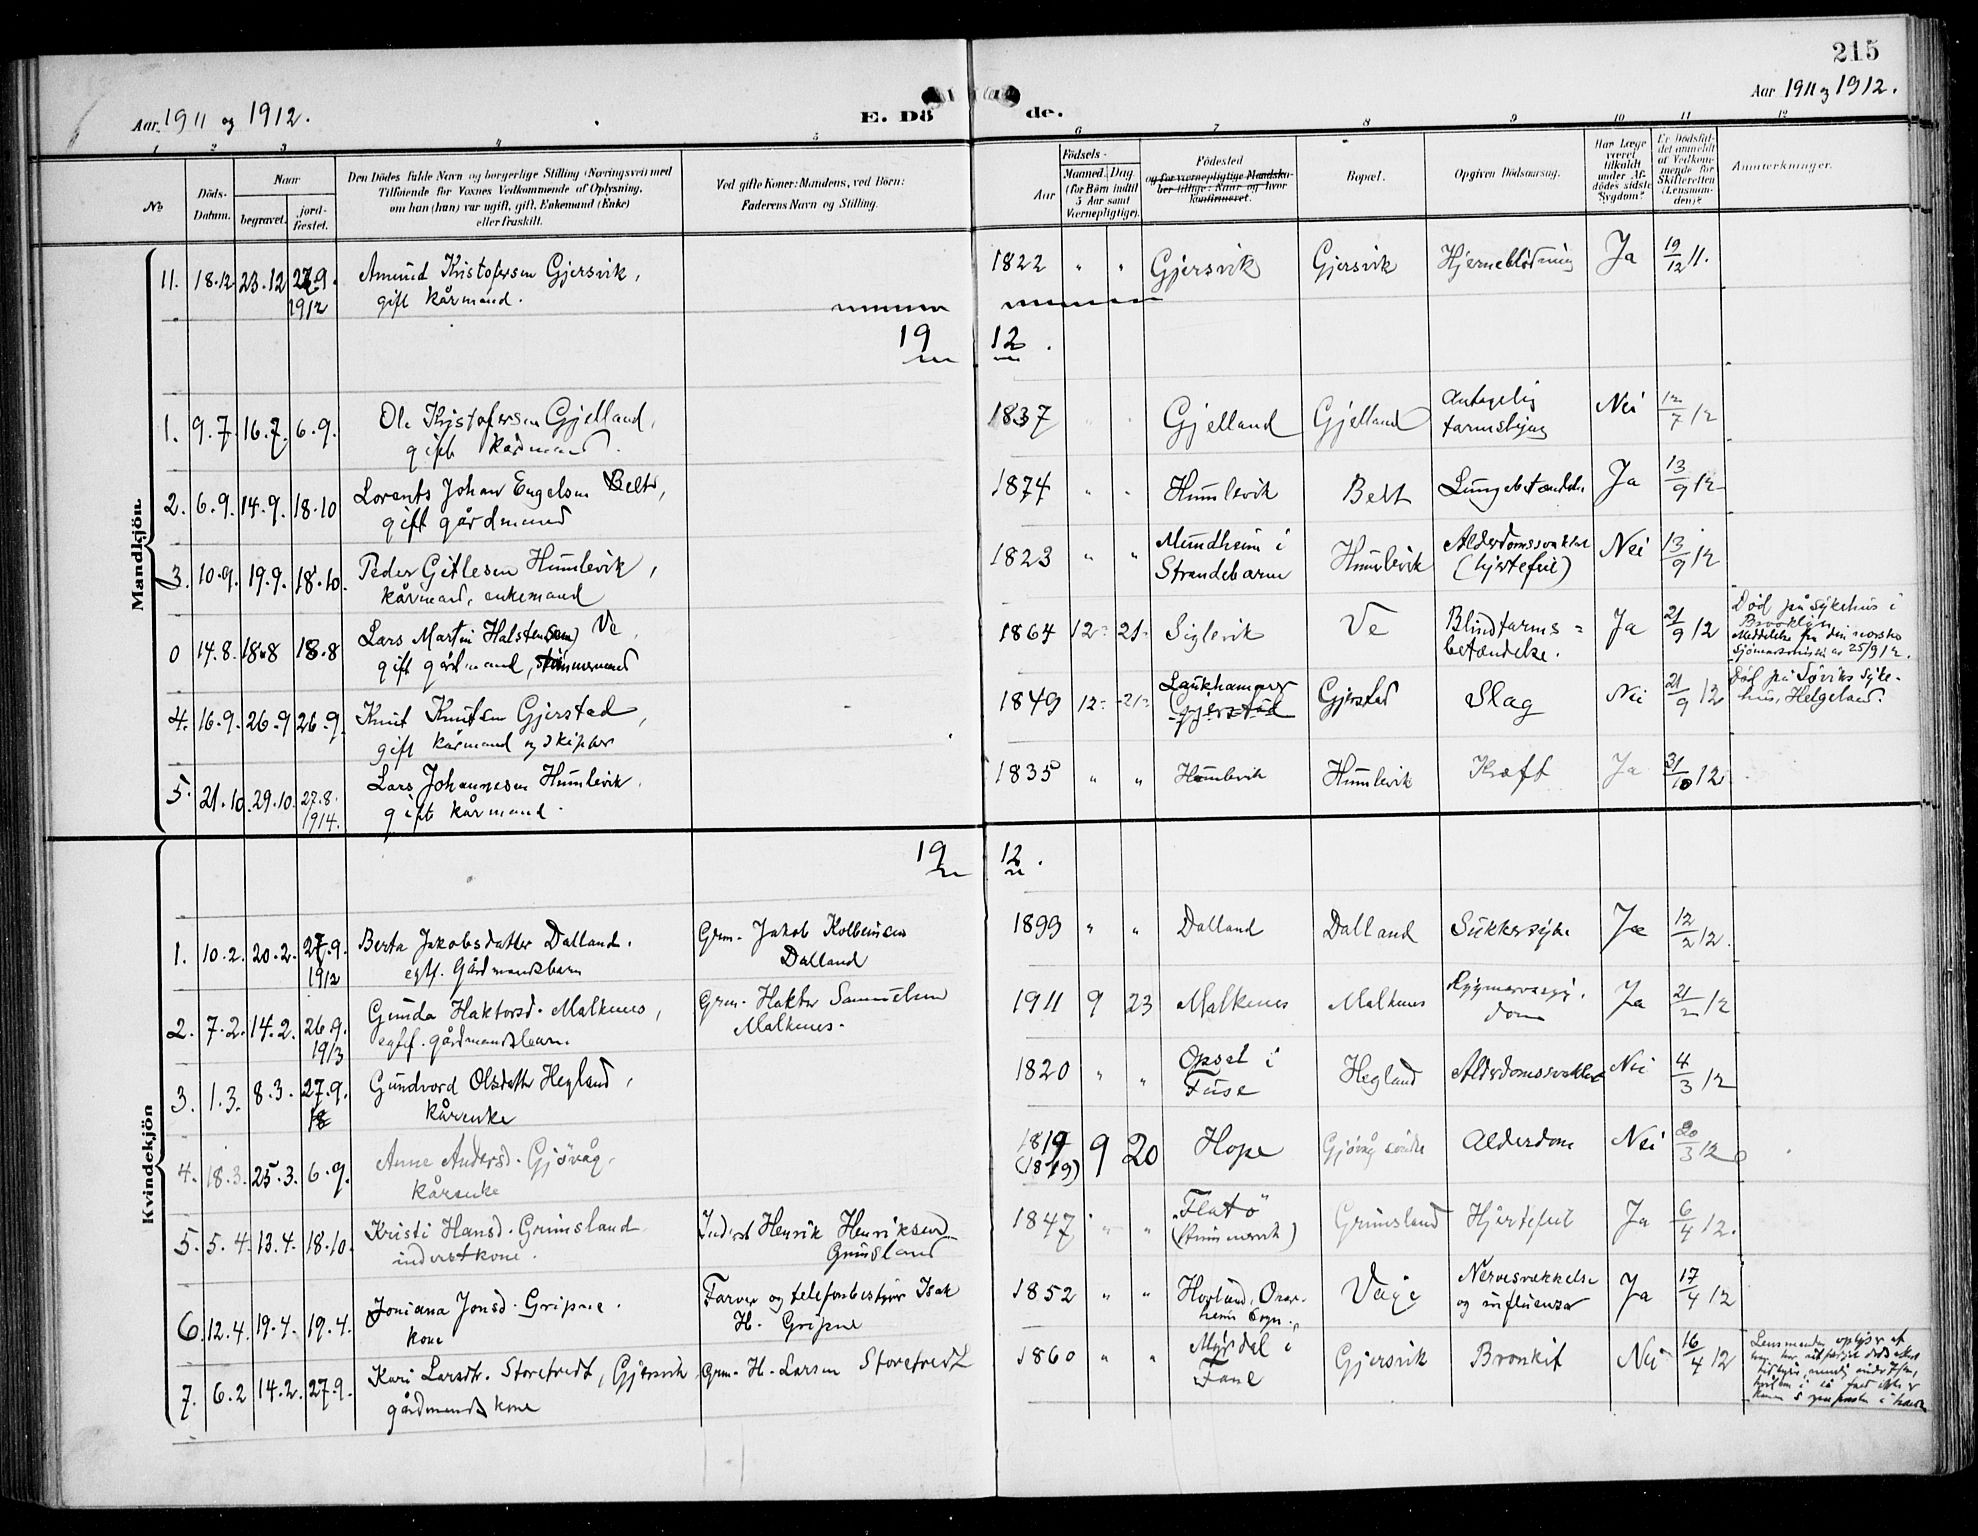 215
Aar 1911 og 1912.
E. Dö
de.
Aar 1911 og 1912.
1 2 3 4 5 6 7 8 9 10 11 12
No.
Döds-
Datum.
Naar
begravet.
jord-
fæstet.
Den Dödes fulde Navn og borgerlige Stilling (Næringsvei) med
Tilföiende for Voxnes Vedkommende af Oplysning,
om han (hun) var ugift, gift, Enkemand (Enke)
eller fraskilt.
Ved gifte Koner: Mandens, ved Börn:
Faderens Navn og Stilling.
Födsels-
Aar
Maaned. Dag
(for Börn indtil
5 Aar samt
Værnepligtige).
Födested
og for værnepligtige Mandska-
ber tillige: Naar og hvor
konfirmeret.
Bopæl.
Opgiven Dödsaarsag.
Har Læge
været
tilkaldt
under Af-
dödes sidste
Sygdom?
Er Dödsfal-
det anmeldt
af Vedkom-
mende for
Skifteretten
(Lensman-
den)?
Anmærkninger.
Mandkjön.
11. 18.12 23.12 27.9. 1912 Amund Kristofersen Gjersvik,
gift kårmand.
1822 " " Gjersvik Gjersvik Hjerneblödning Ja 19/12 11.
19 12.
1. 9.7. 16.7. 6.9. Ole Kristofersen Gjelland,
gift kårmand.
1837 " " Gjelland Gjelland Antagelig
tarmslyng Nei 12/7 12
2. 6.9. 14.9. 18.10 Lorents Johan Engelsen Belt,
gift gårdmand
1874 " " Humlevik Belt Lungebetændelse Ja 13/9 12
3. 10.9. 19.9. 18.10. Peder Gitlesen Humlevik,
kårmand, enkemand
1823 " " Mundheim i
Strandebarm Humlevik Alderdomssvakhet
(hjertefeil) Nei 13/9 12
0 14.8. 18.8 18.8 Lars Martin Halstensen Ve,
gift gårdmand, tömmermand
1864 12 21 Siglevik Ve Blindtarms=
betændelse. Ja 21/9 12
Död på sykehus i
Brooklyn
Meddelelse fra den norske
Sjömandsmission av 25/9 12.
4. 16.9. 26.9 26.9. Knut Knutsen Gjerstad,
gift kårmand og skipper
1849 12 21 Laukhammer
Gjerstad Gjerstad Slag Nei 21/9 12
Död på Söviks syke-
hus, Helgeland.
5. 21.10. 29.10. 27.8. 1914. Lars Johannesen Humlevik,
gift kårmand.
1835 " " Humlevik Humlevik Kræft Ja 31/10 12
Kvindekjön
19 12.
1. 10.2. 20.2. 27.9. 1912 Berta Jakobsdatter Dalland.
egtf. Gårdmandsbarn
Grm. Jakob Kolbeinsen
Dalland
1893 " " Dalland Dalland Sukkersyke Ja 12/2 12.
2. 7.2. 14.2. 26.9. 1913 Gunda Haktorsd. Malkenes,
egtef. gårdmandsbarn.
Grm. Haktor Samuelsen
Malkenes.
1911 9 23 Malkenes Malkenes Rygmarvssyg.
dom Ja 21/2 12
3. 1.3. 8.3. 27.9. Gundvord Olsdatter Hegland,
kårenke
1820 " " Opsal i
Fuse Hegland Alderdomssvakhet Nei 4/3 12
4. 18.3. 25.3. 6.9. Anne Andersd. Gjövåg,
kårenke
1819
(1819) 9 20 Hope Gjövåg söndre Alderdom Nei 20/3 12
5. 5.4. 13.4. 18.10. Kristi Hansd. Grimsland
inderstkone.
Inderst Henrik Henriksen
Grimsland
1847 " " Flatö
Grimsland Hjertefeil Ja 6/4 12.
6. 12.4. 19.4. 19.4. Joniana Jonsd. Gripne.
kone
Farver og telefonbestyrer Isak
H. Gripne
1852 " " Hovland, Onar-
heim Sogn. Vaage Nervesvækkelse
og influenza Ja 17/4 12
7. 6.2 14.2. 27.9. Kari Larsdt. Storetredt, Gjersvik
gårdmands kone
Grm. H. Larsen Storetredt
1860 " " Myrdal i
Fane Gjersvik Bronkit Nei 16/4 12
Lensmanden oplyser at